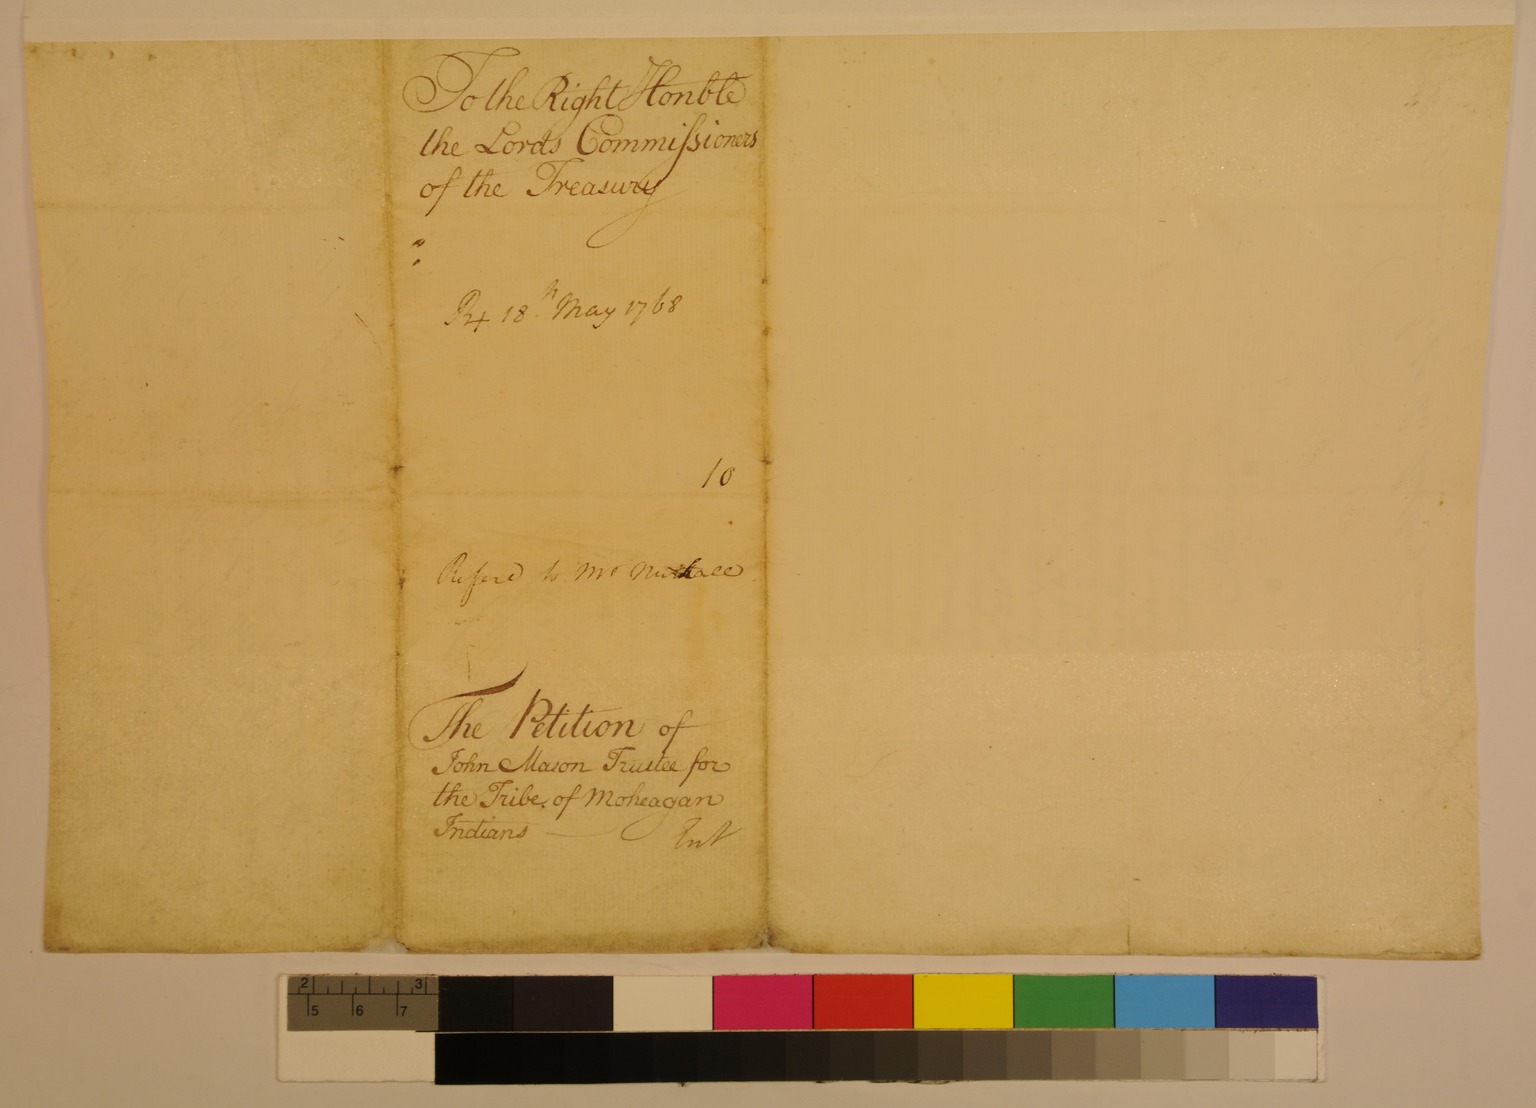 To the Right Honble
the Lords Commissioners
of the Treasury
18th May 1768
10
Referd to Mr Nuthall
The Petition of
John Mason Trustee for
the Tribe of Moheagan
Indians
2 3
5 6 7